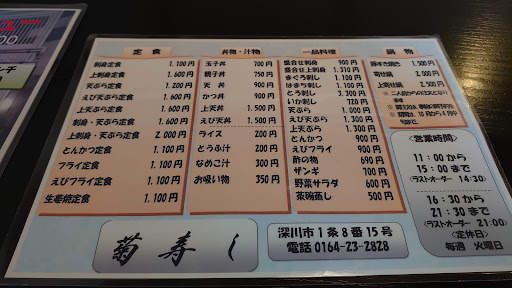 定食
刺身定食 1.100円
上刺身定食 1.600円
天ぷら定食 1.200円
えび天ぷら定食 1.600円
上天ぷら定食 1.600円
刺身・天ぷら定食 1.600円
上刺身・天ぷら定食 2.000円
とんかつ定食 1.100円
フライ定食 1.100円
えびフライ定食 1.100円
生姜焼定食 1.100円
丼物・汁物
玉子丼 700円
親子丼 750円
天丼 900円
かつ丼 900円
上天丼 1.500円
えび天丼 1.500円
ライス 200円
とうふ汁 200円
なめこ汁 300円
お吸い物 350円
一品料理
盛合せ刺身 900円
盛合せ上刺身 1.310円
まぐろ刺し 1.100円
はまち刺し 1.100円
とろ刺し 2.300円
いか刺し 720円
天ぷら 900円
えび天ぷら 1.300円
上天ぷら 1.300円
とんかつ 900円
えびフライ 900円
酢の物 690円
ザンギ 700円
野菜サラダ 600円
茶碗蒸し 500円
鍋物
1.500円
寄せ鍋 2.000円
上寄せ鍋 2.500円
<営業時間>
11:00から
15:00まで
<ラストオーダー 14:30>
16:30から
21:30まで
<ラストオーダー 21:00>
<定休日>
毎週 火曜日
菊寿し
深川市1条8番15号
電話 0164-23-2828